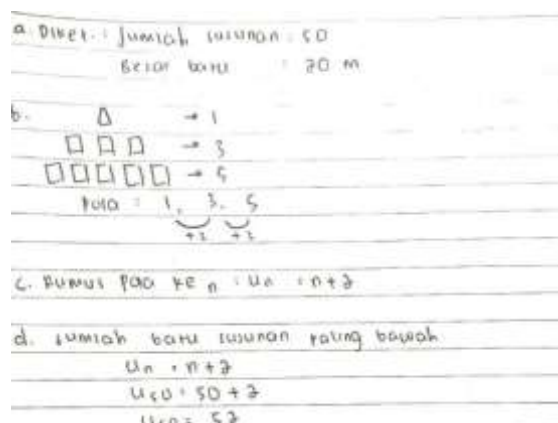 a. Diket : Jumlah susunan : 50
Besar batu : 20 m
b. → 1
→ 3
→ 5
Pola : 1, 3, 5
+2 +2
c. Rumus pola ke n : Un = n+2
d. Jumlah batu susunan paling bawah
Un = n+2
U50 = 50+2
U50 = 52